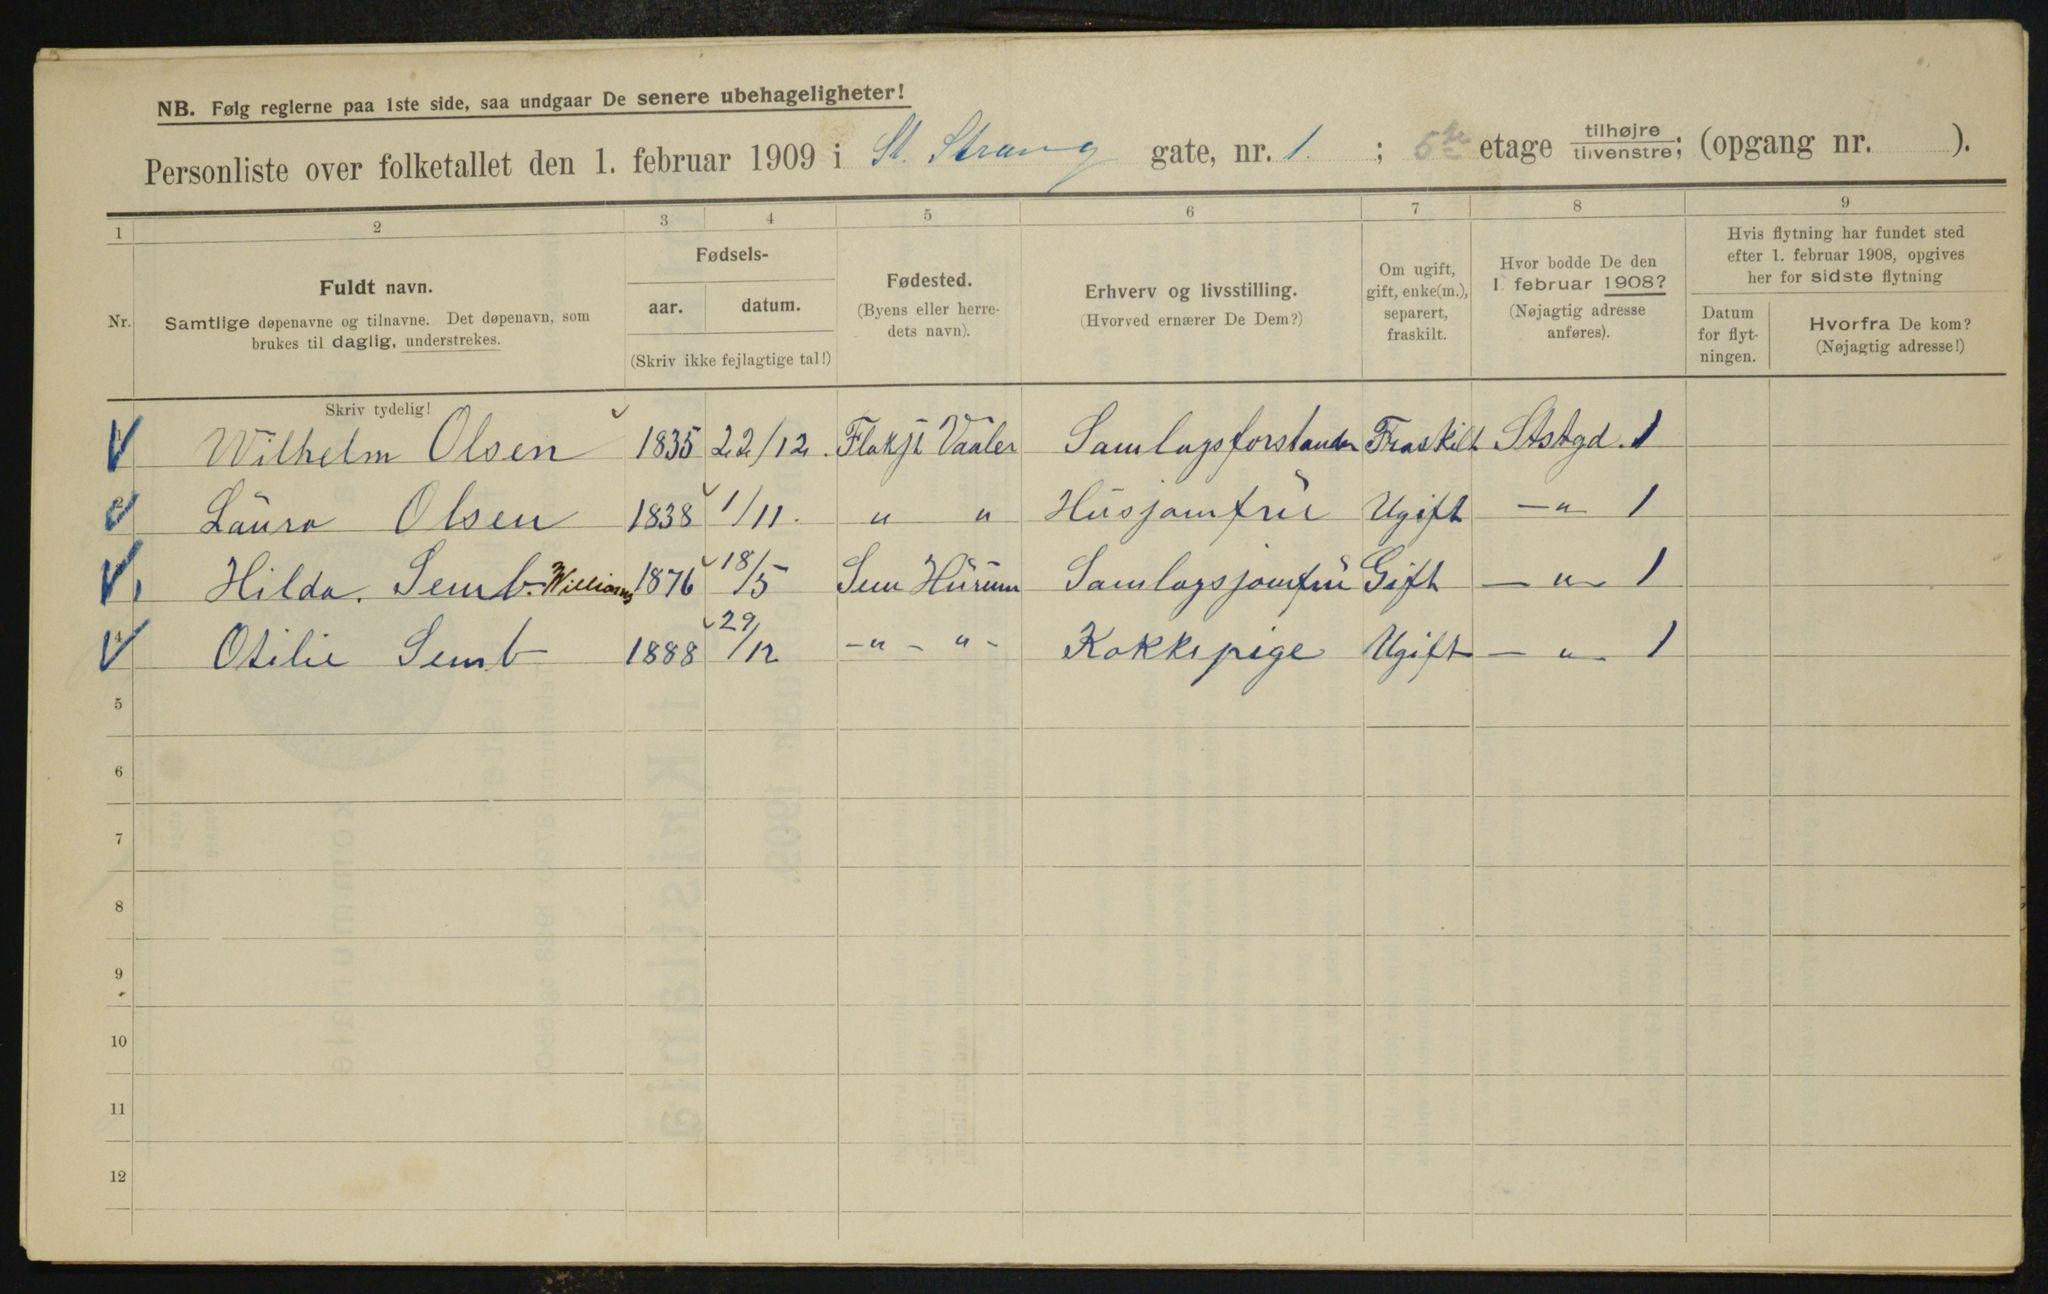 NB. Følg reglerne paa 1ste side, saa undgaar De senere ubehageligheter!
Personliste over folketallet den 1. februar 1909 i St. Strang gate, nr. 1. ; 5te etage tilhøjre tilvenstre; (opgang nr. ).
1 2 3 4 5 6 7 8 9
Nr.
Fuldt navn.
Samtlige døpenavne og tilnavne. Det døpenavn, som
brukes til daglig, understrekes.
Fødsels-
aar. datum.
(Skriv ikke fejlagtige tal!)
Fødested.
(Byens eller herre-
dets navn).
Erhverv og livsstilling.
(Hvorved ernærer De Dem?)
Om ugift,
gift, enke(m.),
separert,
fraskilt.
Hvor bodde De den
1. februar 1908?
(Nøjagtig adresse
anføres).
Hvis flytning har fundet sted
efter 1. februar 1908, opgives
her for sidste flytning
Datum
for flyt-
ningen.
Hvorfra De kom?
(Nøjagtig adresse!)
Skriv tydelig!
Wilhelm Olsen 1835 22/12. Flakst Vaaler Samlagsforstander Fraskilt Ststgd. 1
2 Laura Olsen 1838 1/11. " " Husjomfru Ugift — " 1
Hilda. Semb. Williams 1876 18/5 Sem Hurum Samlagsjomfru Gift — " — 1
4 Otilie Semb 1888 29/12 — " — " — Kokkepige Ugift — " — 1
5
6
7
8
9
10
11
12